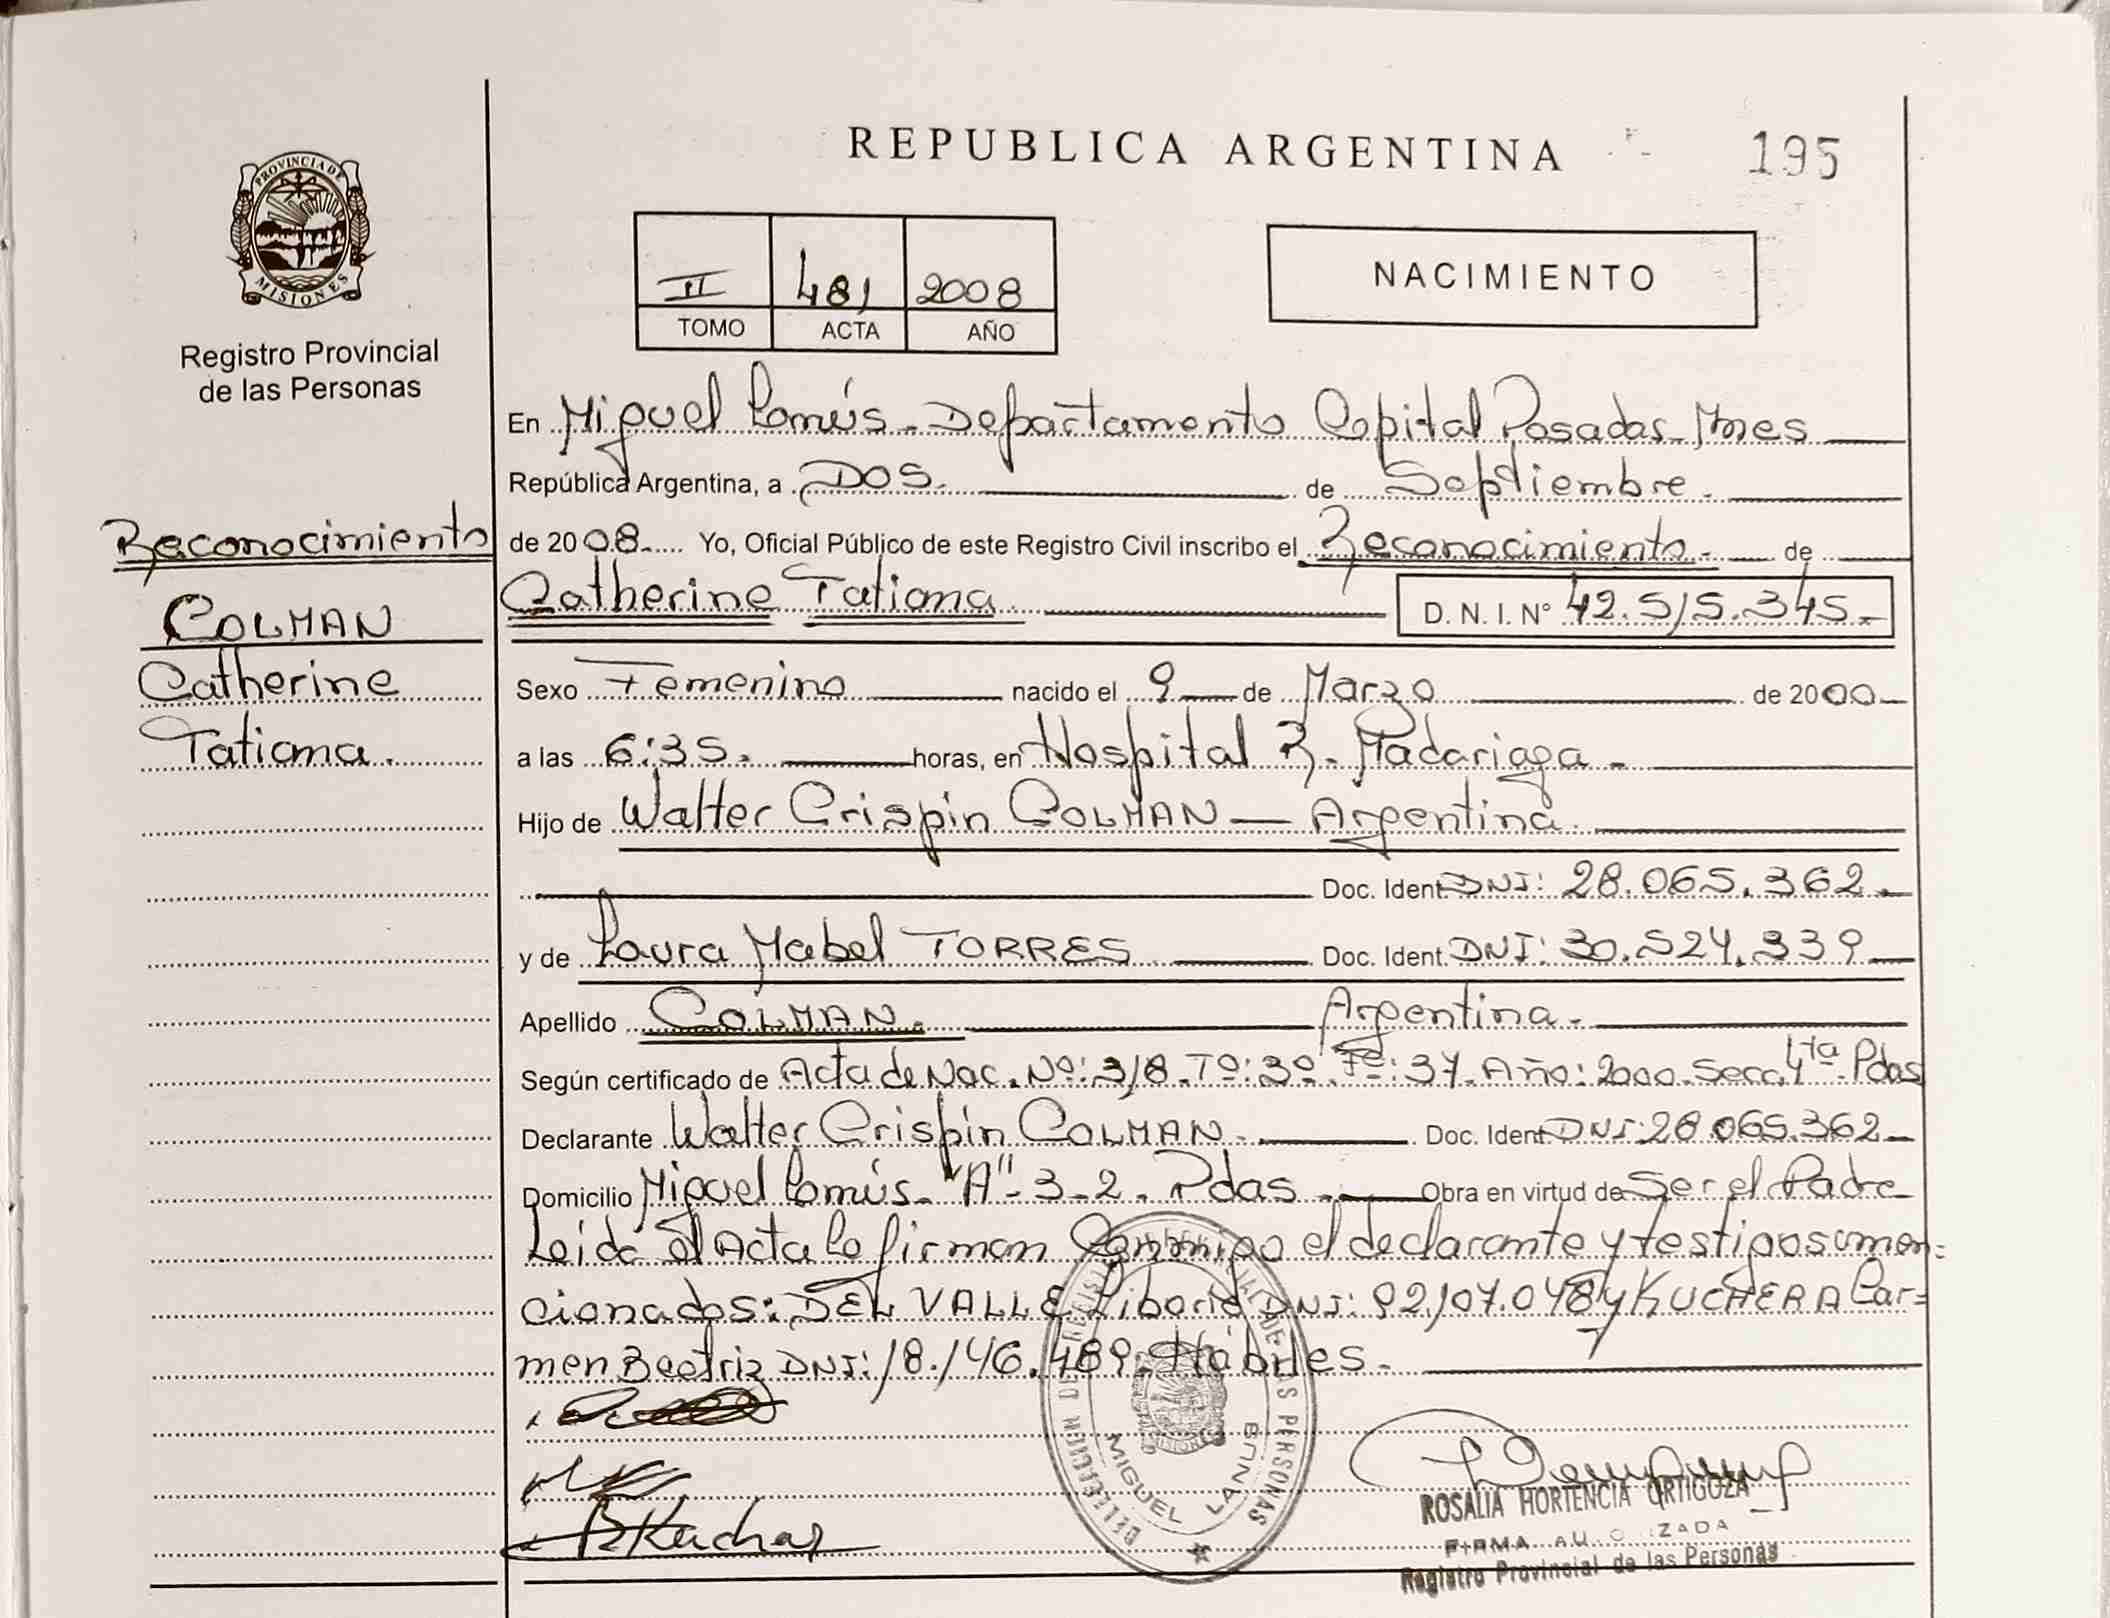 REPUBLICA ARGENTINA
195
PROVINCIA DE
MISIONES
Registro Provincial
de las Personas
II 481 2008
TOMO ACTA AÑO
NACIMIENTO
Reconocimiento
COLMAN
Catherine
Tatiana.
En Miguel Lanús. Departamento Capital Posadas. Mnes
República Argentina, a DOS. de Septiembre.
de 2008. Yo, Oficial Público de este Registro Civil inscribo el Reconocimiento. de
Catherine Tatiana D. N. I. N° 42.515.345.-
Sexo Femenino nacido el 9 de Marzo de 2000
a las 6:35. horas, en Hospital R. Madariaga.
Hijo de Walter Crispin COLMAN — Argentina
Doc. Ident. DNI: 28.065.362.
y de Laura Mabel TORRES Doc. Ident. DNI: 30.524.339
Apellido COLMAN. Argentina.
Según certificado de Acta de Nac. Nº: 318. Tº: 3º. Fº: 37. Año: 2000. Secc. 4ta. Pdas
Declarante Walter Crispin COLMAN. Doc. Ident. DNI: 28.065.362
Domicilio Miguel Lanús. "A". 3-2. Pdas. Obra en virtud de Ser el Padre
Leida el Acta la firman Conmigo el declarante y testigos
cionados: DEL VALLE Liborio DNI: 92.107.048 y KUCHERA Car=
men Beatriz DNI: 18.146.489. Hábiles.
DELEGACION DE REGISTRO PROVINCIAL DE LAS PERSONAS
MIGUEL LANUS
BKuchar
ROSALIA HORTENCIA ORTIGOZA
FIRMA AUTORIZADA
Registro Provincial de las Personas